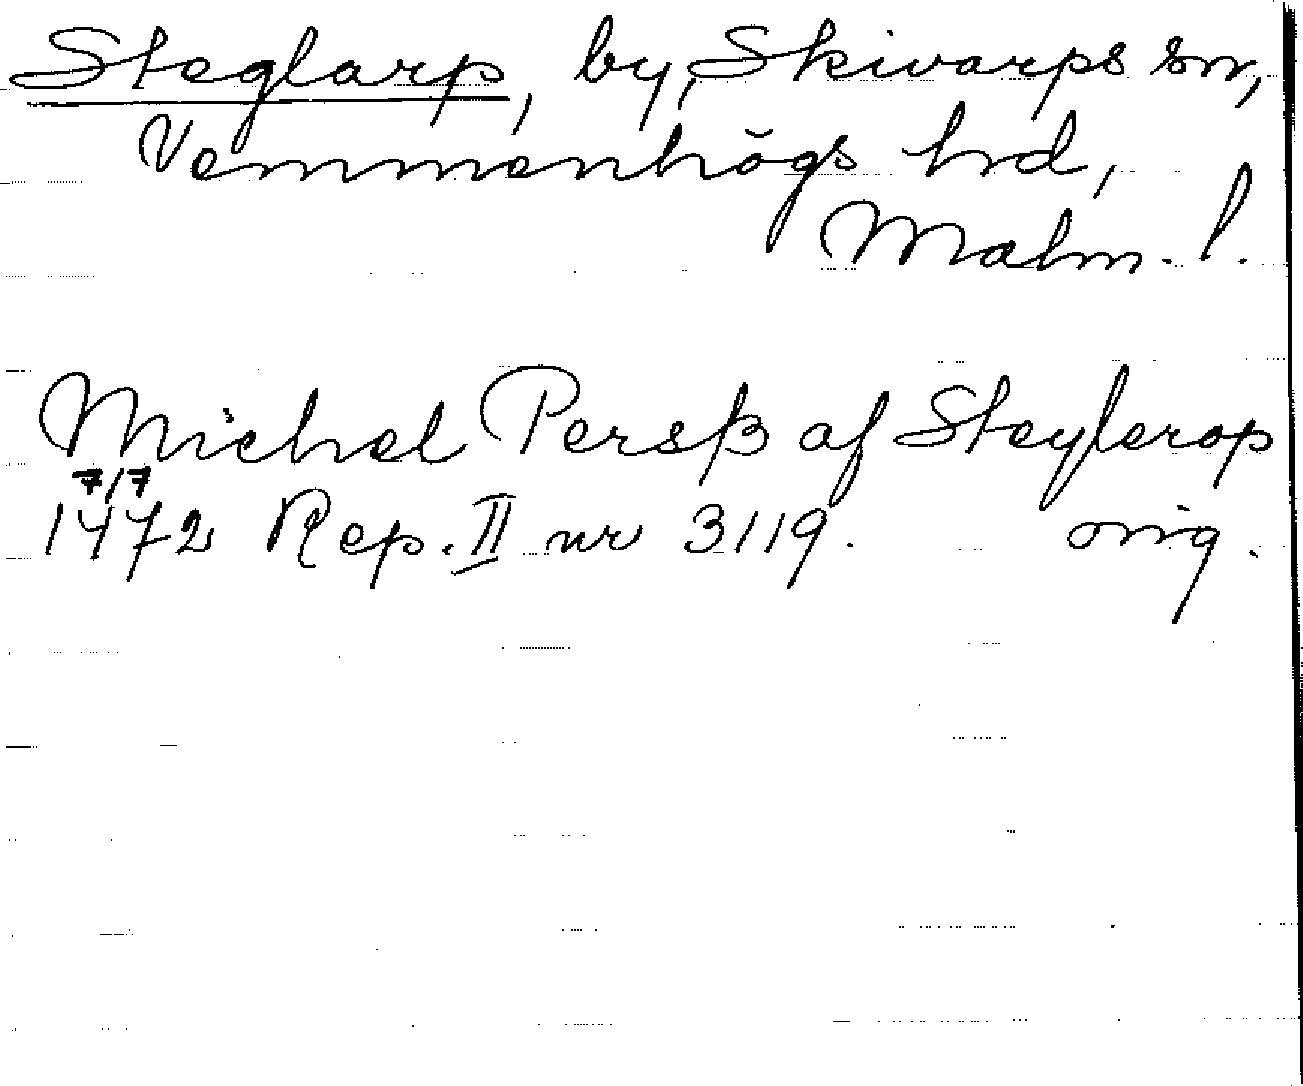 Steglarp, by, Skivarps sn,
Vemmenhögs hrd,
Malm. l.
Michel Persß af Steylerop
7/7
1472 Rep. II nr 3119. orig.